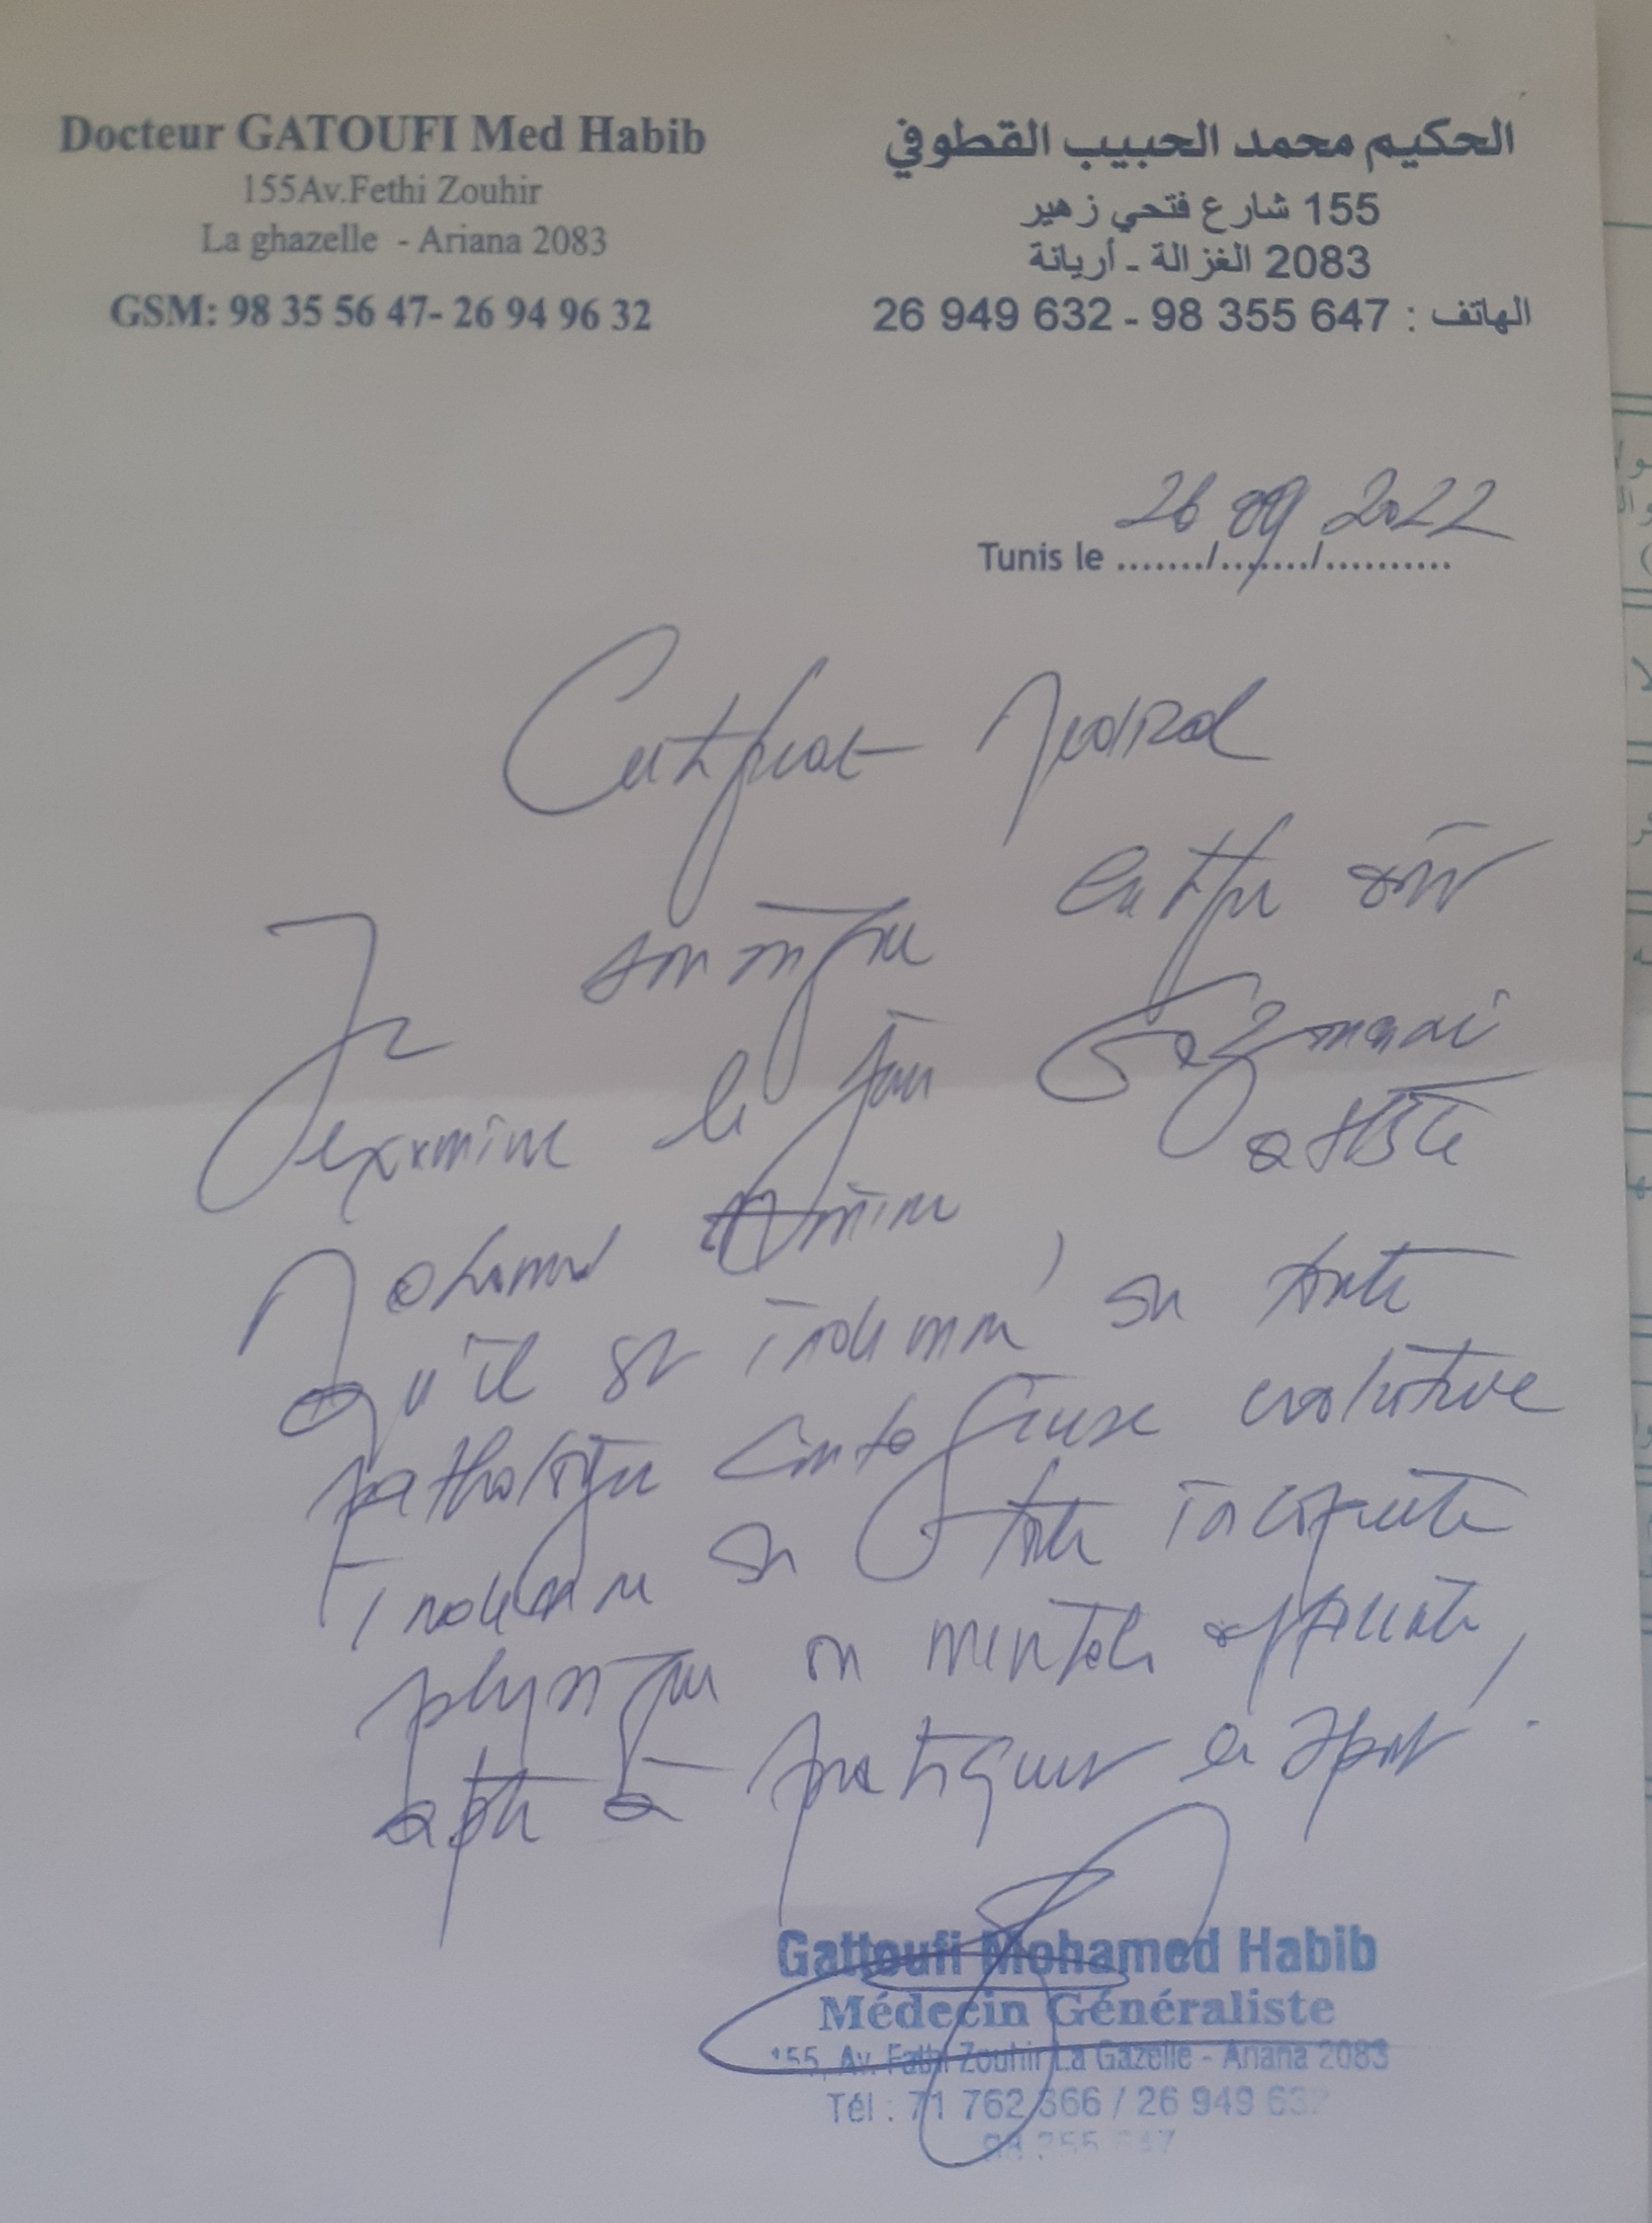 Docteur GATOUFI Med Habib
155Av.Fethi Zouhir
La ghazelle - Ariana 2083
GSM: 98 35 56 47- 26 94 96 32
الحكيم محمد الحبيب القطوفي
155 شارع فتحي زهير
2083 الغزالة - أريانة
الهاتف : 98 355 647 - 26 949 632
Tunis le 26/09/2022
Certificat Medical
Je soussigné certifie avoir
examiné le
Mohamed Amine, atteste
qu'il est indemne de toute
pathologie contagieuse evolutive
indemne de toute incapacité
physique ou mentale apparente,
apte à pratiquer le sport.
Gattoufi Mohamed Habib
Médecin Généraliste
155, Av. Fathi Zouhir La Gazelle - Ariana 2083
Tél : 71 762 366 / 26 949 632
98 355 647